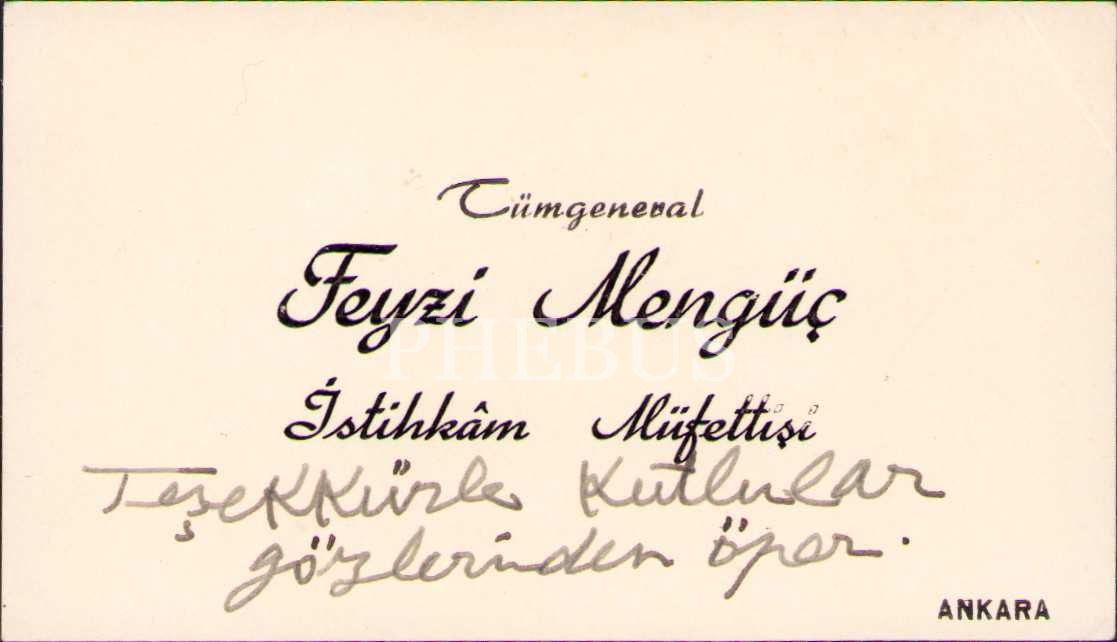 Tümgeneral
Feyzi Mengüç
PHEBUS
İstihkâm Müfettişi
Teşekkürle Kutlular
gözlerinden öper.
ANKARA